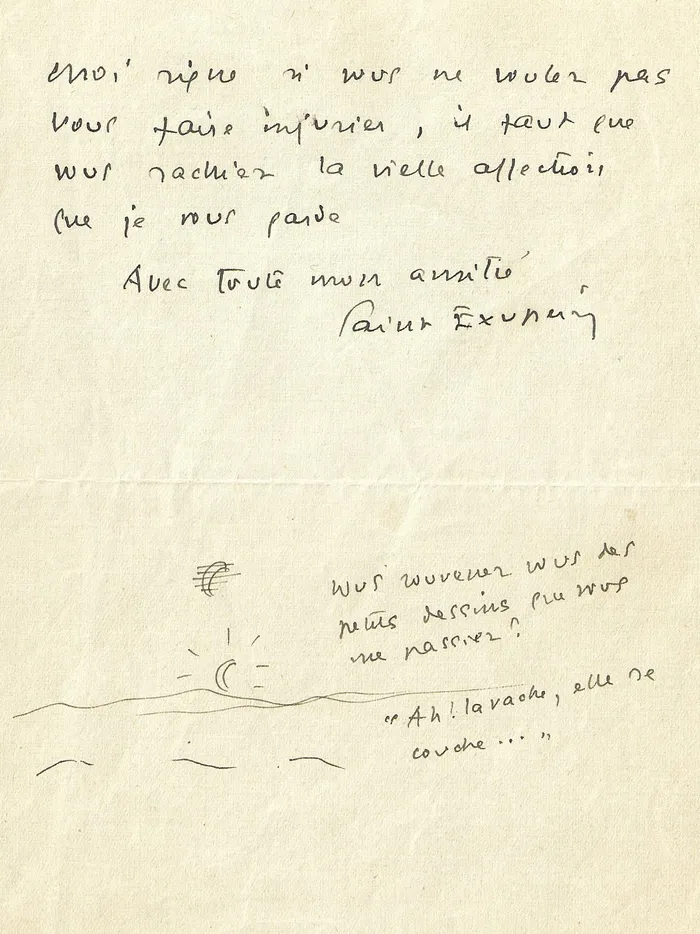 moi signe si vous ne voulez pas
vous faire injurier, il faut que
vous sachiez la vielle affection
que je vous garde
Avec toute mon amitié
Saint Exupéry
Vous souvenez vous des
petits dessins que vous
me passiez ?
"Ah ! la vache, elle se
couche ... "